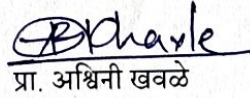 प्रा. अश्विनी खवळे